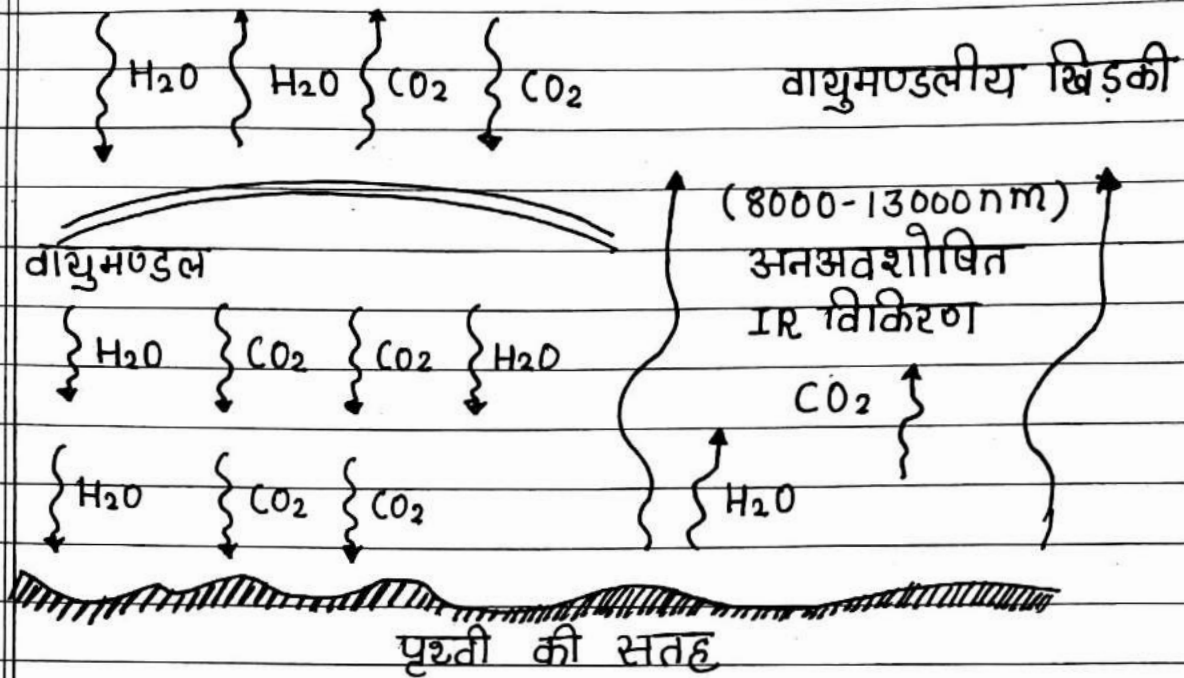 H₂O H₂O CO₂ CO₂ वायुमण्डलीय खिड़की
(8000-13000nm)
वायुमण्डल अनअवशोषित
IR विकिरण
H₂O CO₂ CO₂ H₂O
CO₂
H₂O CO₂ CO₂ H₂O
पृथ्वी की सतह